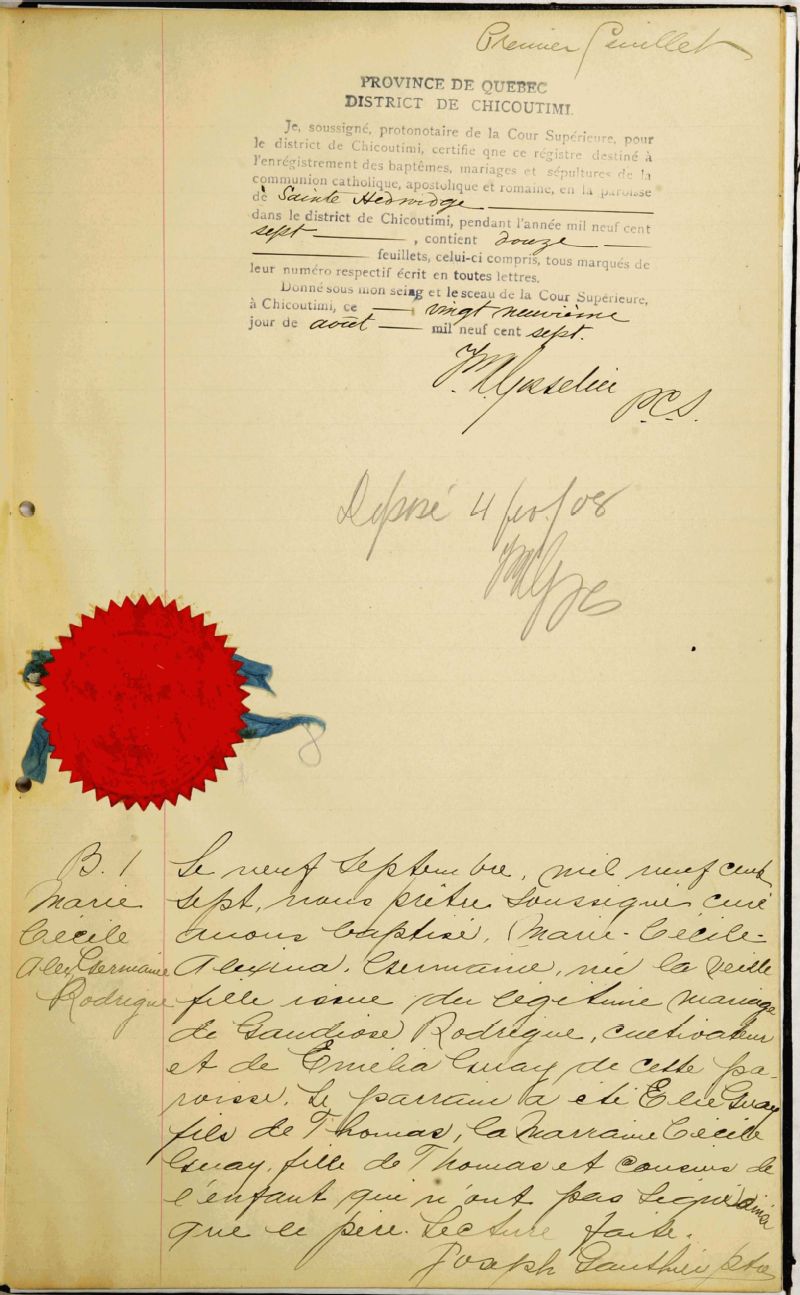 Premier feuillet
PROVINCE DE QUEBEC
DISTRICT DE CHICOUTIMI.
Je, soussigné, protonotaire de la Cour Supérieure, pour
le district de Chicoutimi, certifie qne ce régistre destiné à
l'enrégistrement des baptêmes, mariages et sépultures de la
communion catholique, apostolique et romaine, en la paroisse
de Sainte Hedwidge
dans le district de Chicoutimi, pendant l'année mil neuf cent
sept, contient douze
feuillets, celui-ci compris, tous marqués de
leur numéro respectif écrit en toutes lettres.
Donné sous mon seing et le sceau de la Cour Supérieure,
à Chicoutimi, ce vingt neuvième
jour de août mil neuf cent sept.
Gosselin
P.C.S.
Déposé 4 fev./08
B. 1
Marie
Cécile
Alex. Germaine
Rodrigue
Le neuf Septembre, mil neuf cent
sept, nous prêtre soussigné curé
avons baptisé, Marie-Cécile-
Alexina. Germaine, née la veille
fille issue du légitime mariage
de Gaudiose Rodrigue, cultivateur
et de Emélia Guay de cette pa-
roisse. Le parrain a été Elie Guay
fils de Thomas, la Marraine Cécile
Guay, fille de Thomas et cousins de
l'enfant qui n'ont pas signé ainsi
que le père. Lecture faite.
Joseph Gauthier ptre